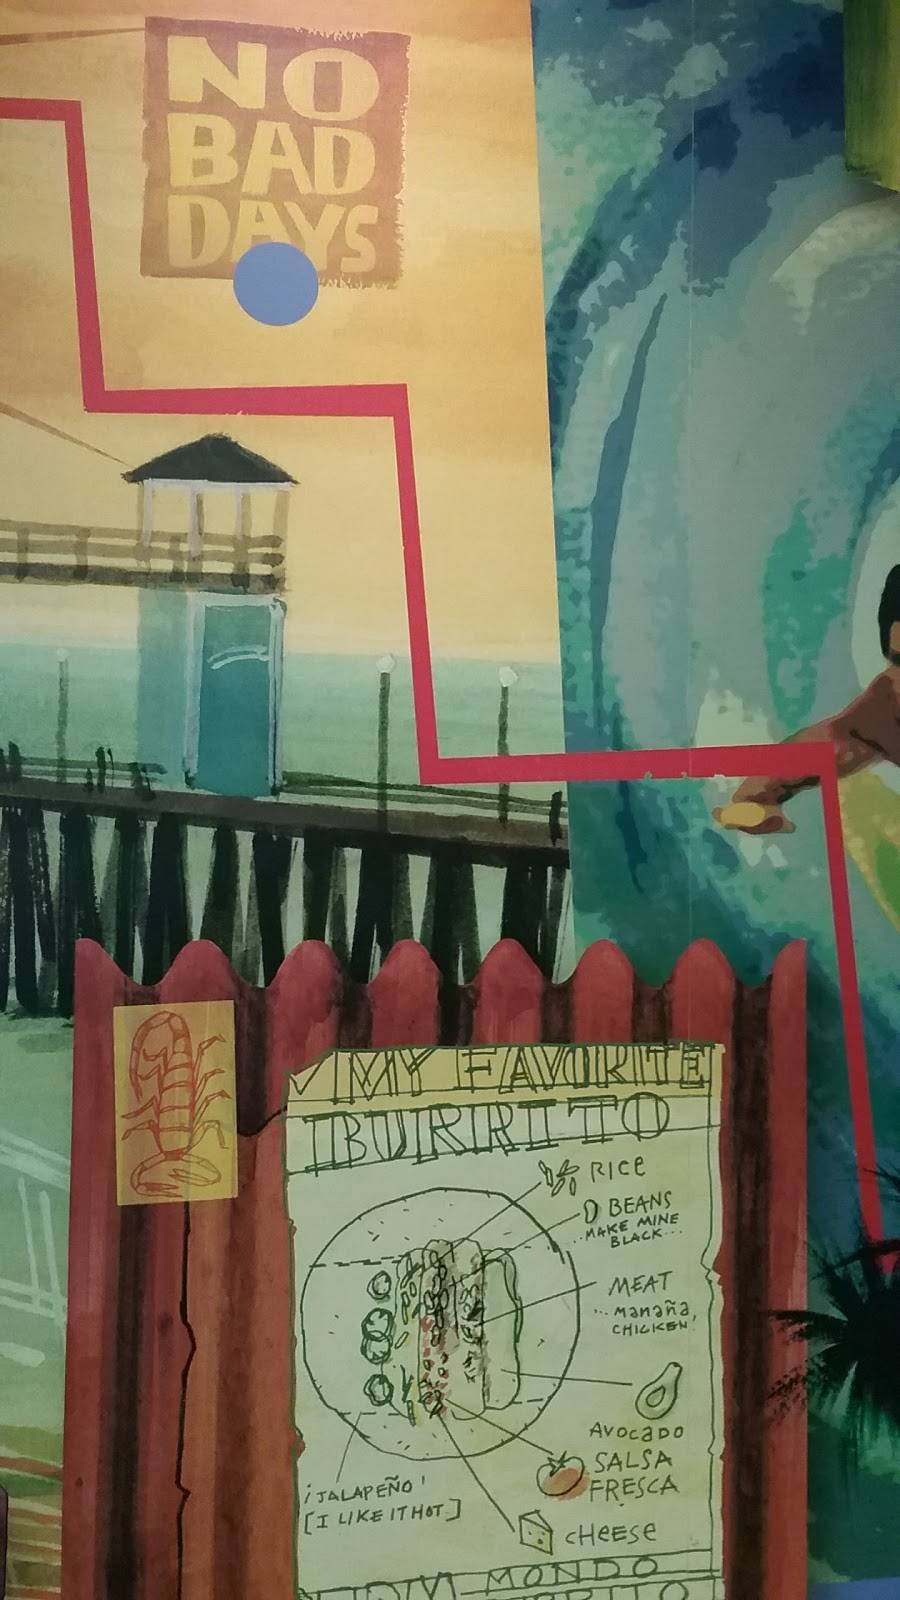 NO
BAD
DAYS
MY FAVORITE
BURRITO
RICE
BEANS
MAKE MINE
BLACK...
MEAT
...manaña
CHICKEN!
AVOCADO
SALSA
FRESCA
¡JALAPEÑO!
[I LIKE IT HOT]
CHEESE
MONDO
BURRITO